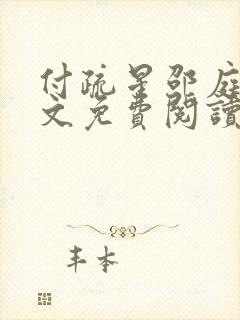 付疏星邵庭
文免費閱讀
丰本